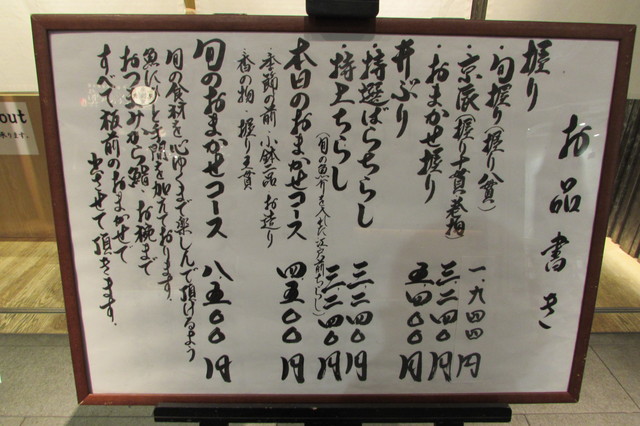 お品書き
握り
・旬握り(握り八貫) 一、九四四円
・京辰(握り十貫、巻物) 三、二四〇円
・おまかせ握り 五、四〇〇円
丼ぶり
・特選ばらちらし 三、二四〇円
・特上ちらし 三、二四〇円
(旬の魚介を入れた江戸前ちらし)
本日のおまかせコース 四、五〇〇円
・季節の前・小鉢二品・お造り
・香の物・握り五貫
旬のおまかせコース 八、五〇〇円
旬の食材を心ゆくまで楽しんで頂けるよう
魚にひと手間を加えております。
おつまみから鮨、お椀まで
すべて板前のおまかせで
させて頂きます。
out
承ります。